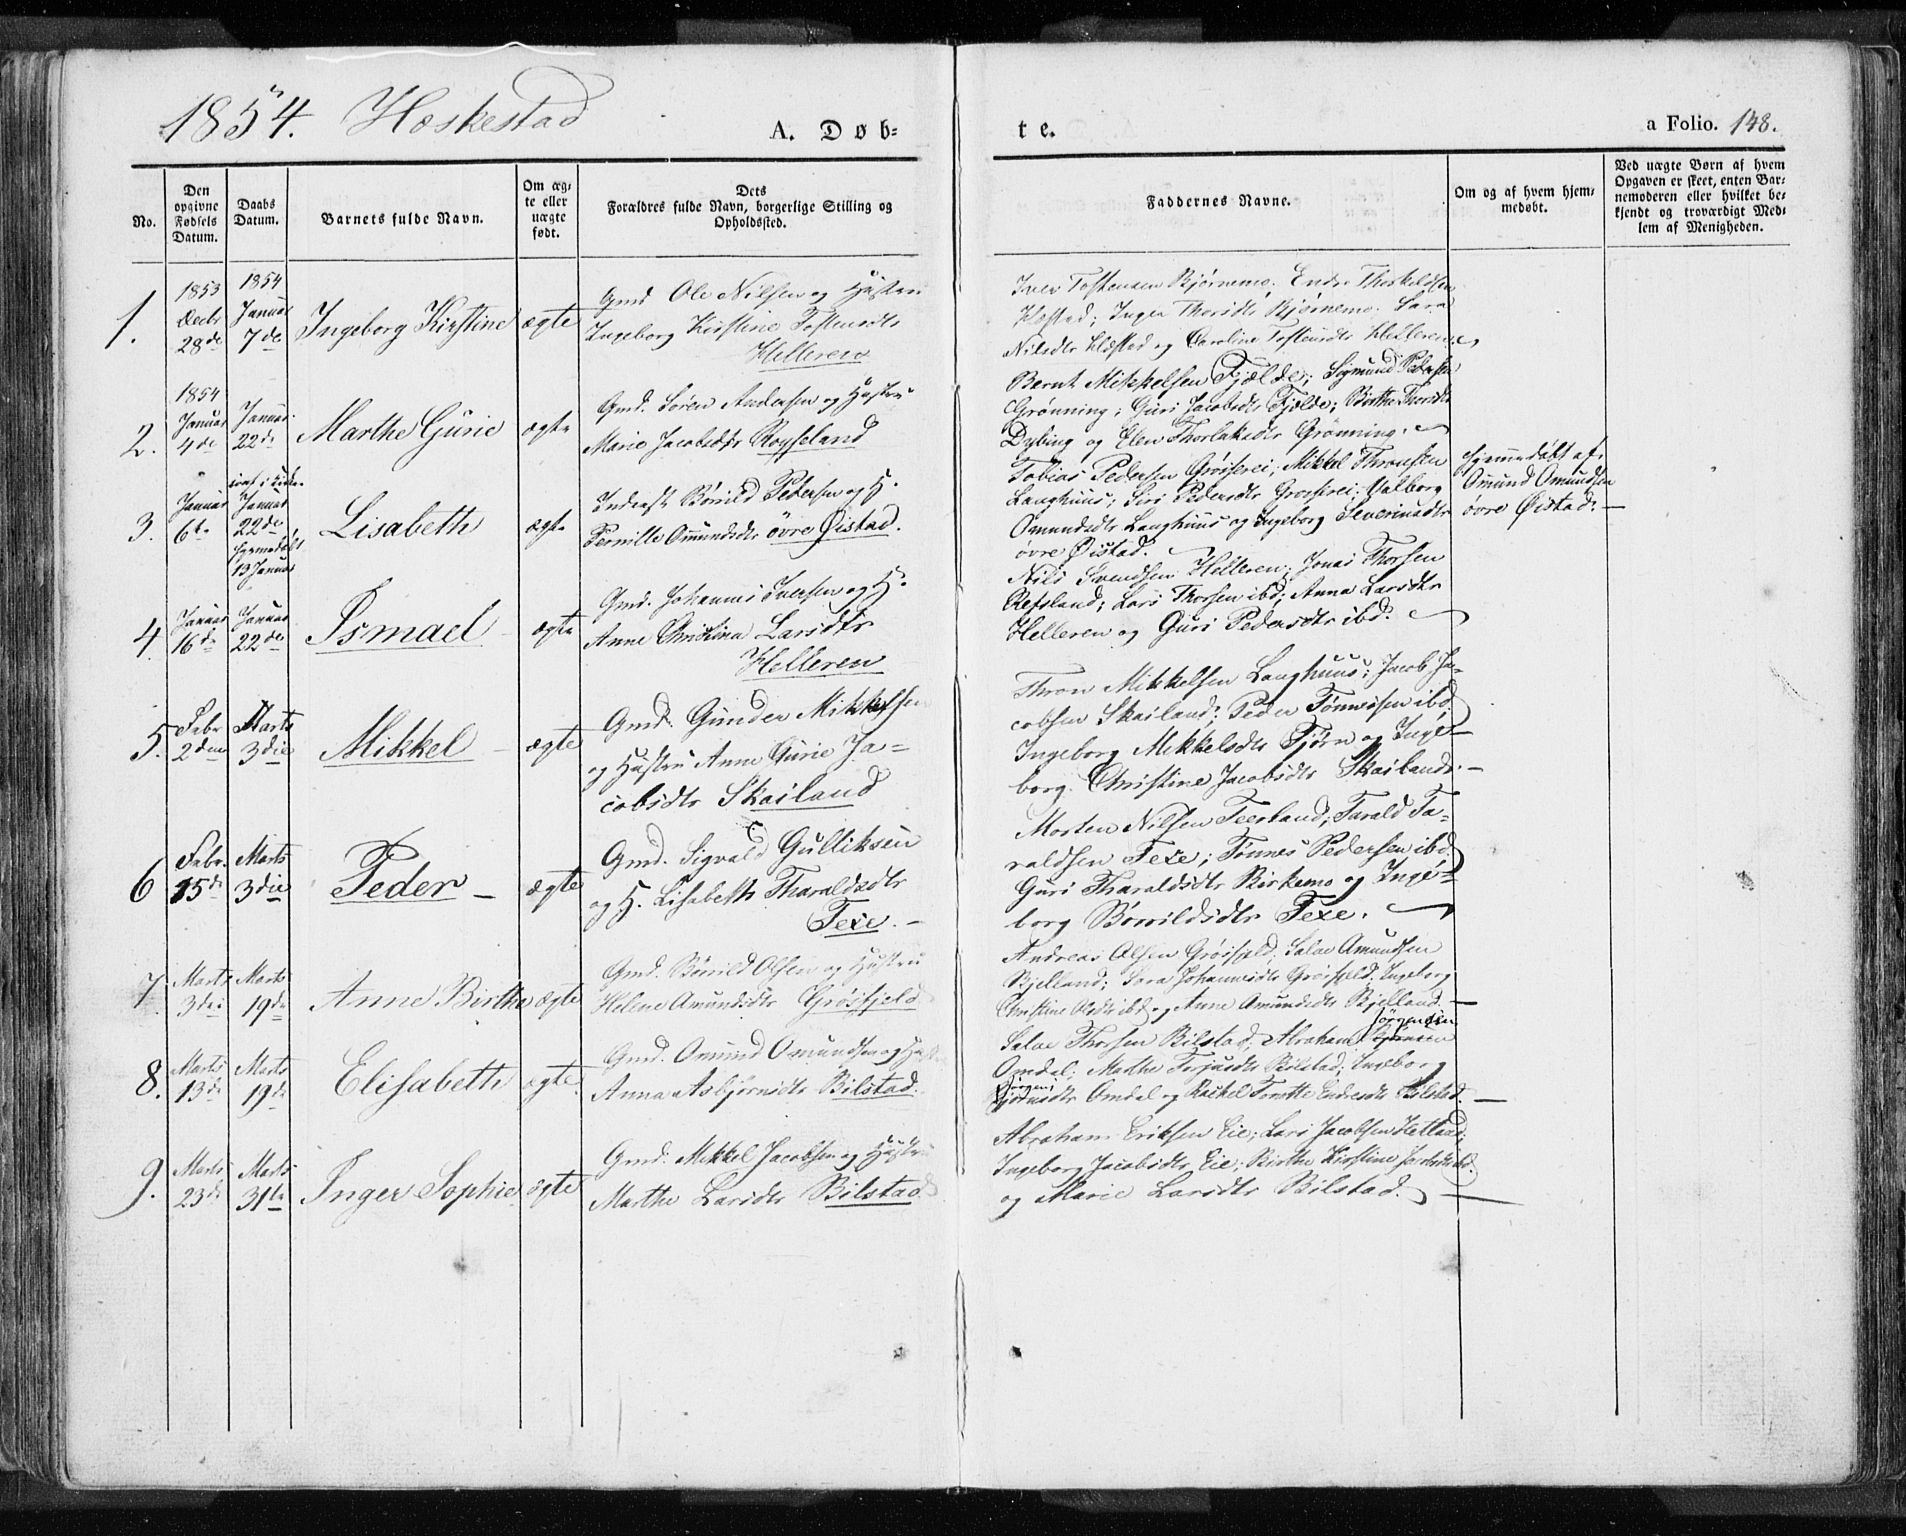 1854. Heskestad
A. Døb-
te.
a Folio. 148.
No.
Den opgivne Fødsels Datum.
Daabs Datum.
Barnets fulde Navn.
Om æg-
te eller
uægte
født.
Dets
Forældres fulde Navn, borgerlige Stilling og
Opholdssted.
Faddernes Navne.
Om og af hvem hjem-
medøbt.
Ved uægte Børn af hvem
Opgaven er skeet, enten Bar-
nemoderen eller hvilket be-
kjendt og troværdigt Med-
lem af Menigheden.
1.
1853
Decbr
28de
1854
Januar
7de
Ingeborg Kirstine
ægte
Gmd Ole Nilsen og Hustru
Ingeborg Kirstine Tostensdtr
Helleren
Iver Tostensen Bjørnemo. Endre Thorkeldsen
Klæstad; Inger Thorsdtr Bjørnemo. Sara
Nilsdtr Klæstad og Caroline Tostensdtr Helleren
2.
1854
Januar
4de
Januar
22de
Marthe Gurie
ægte
Gmd. Søren Andersen og Hustru
Marie Jacobsdtr Røyseland
Bernt Mikkelsen Fjælde; Sigmund Pedersen
Grønning; Guri Jacobsdtr Fjælde; Birthe Thorsdtr
Dybing og Elen Thorlaksdtr Grønning.
3.
Januar
6te
Januar
22de
hjemmedøbt
13 Januar
Lisabeth
ægte
Inderst Børild Pedersen og H.
Pernille Omundsdtr øvre Øistad.
Tobias Pedersen Grøsserei; Mikkel Thronsen
Langhuus; Siri Pedersdtr Grosserei; Valborg
Omundsdtr Langhuus og Ingeborg Severinsdtr
øvre Øistad.
Hjemmedøbt af
Omund Omundsen
øvre Øistad. —
4.
Januar
16de
Januar
22de
Ismael
ægte
Gmd. Johannes Iversen og H.
Anne Christina Larsdtr
Helleren
Nils Svendsen Helleren; Jonas Thorsen
Refsland; Lars Thorsen ibd; Anna Larsdtr
Helleren og Guri Pedersdtr ibd.
5.
Febr
2den
Marts
3die
Mikkel
ægte
Gmd. Gunder Mikkelsen
og Hustru Anne Gurie Ja-
cobsdtr Skailand
Thron Mikkelsen Langhuus; Jacob Ja-
cobsen Skailand; Peder Tønnesen ibd,
Ingeborg Mikkelsdtr Fjørn og Inge-
borg Christine Jacobsdtr Skailand. —
6
Febr.
15de
Marts
3die
Peder —
ægte
Gmd. Sigvald Gulliksen
og H. Lisabeth Tharaldsdtr
Fexe. —
Morten Nilsen Feerland; Tarald Ta-
raldsen Fexe; Tønnes Pedersen ibd,
Guri Tharaldsdtr Birkemo og Inge-
borg Børrildsdtr Fexe.
7
Marts
3die
Marts
19de
Anne Birthe
ægte
Gmd. Børild Olsen og Hustru
Helene Amundsdtr Grøsfjeld
Andreas Olsen Grøsfjeld; Salve Amundsen
Bjelland; Sora Johannesdtr Grøsfjeld; Ingeborg
Christine Olsdtr ibd og Anne Amundsdtr Bjelland. —
8.
Marts
13de
Marts
19de
Elisabeth
ægte
Gmd. Omund Omundsen og Hustru
Anna Asbjørnsdtr Bilstad.
Salve Thorsen Bilstad; Abraham Jørgensen
Omdal; Marthe Terjusdtr Bilstad; Ingeborg
Jørgens
dtr Omdal og Rachel Tomette Endresdtr Bilstad. —
9.
Marts
23de
Marts
31te
Inger Sophie
ægte
Gmd. Mikkel Jacobsen og Hustru
Marthe Larsdtr Bilstad
Abraham Eriksen Eie; Lars Jacobsen Hetland;
Ingeborg Jacobsdtr Eie; Birthe Kirstine Jacobsdtr ibd.
og Marie Larsdtr Bilstad. —